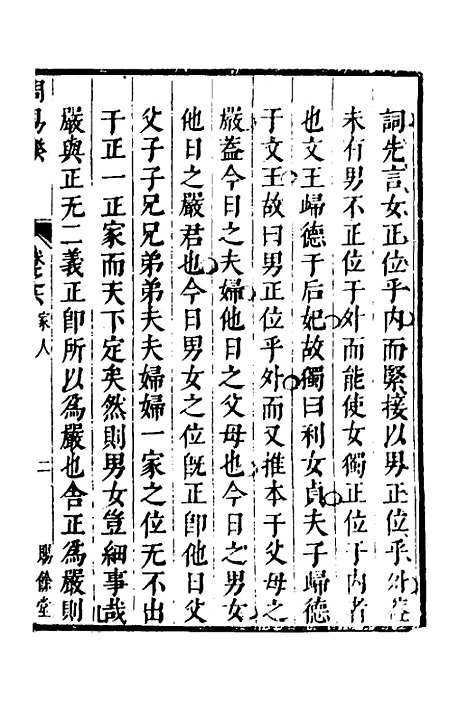 詞先言女正位乎内而緊接以男正位乎外葢
未有男不正位于外而能使女獨正位于内者
也文王歸德于后妃故獨曰利女貞夫子歸德
于文王故曰男正位乎外而又推本于父母之
嚴蓋今日之夫婦他日之父母也今日之男女
他日之嚴君也今日男女之位既正卽他日父
父子子兄兄弟弟夫夫婦婦一家之位无不出
于正一正家而天下定矣然則男女豈細事哉
嚴與正无二義正卽所以爲嚴也舍正爲嚴則
周易
卷之六 家人 二 賜餘堂